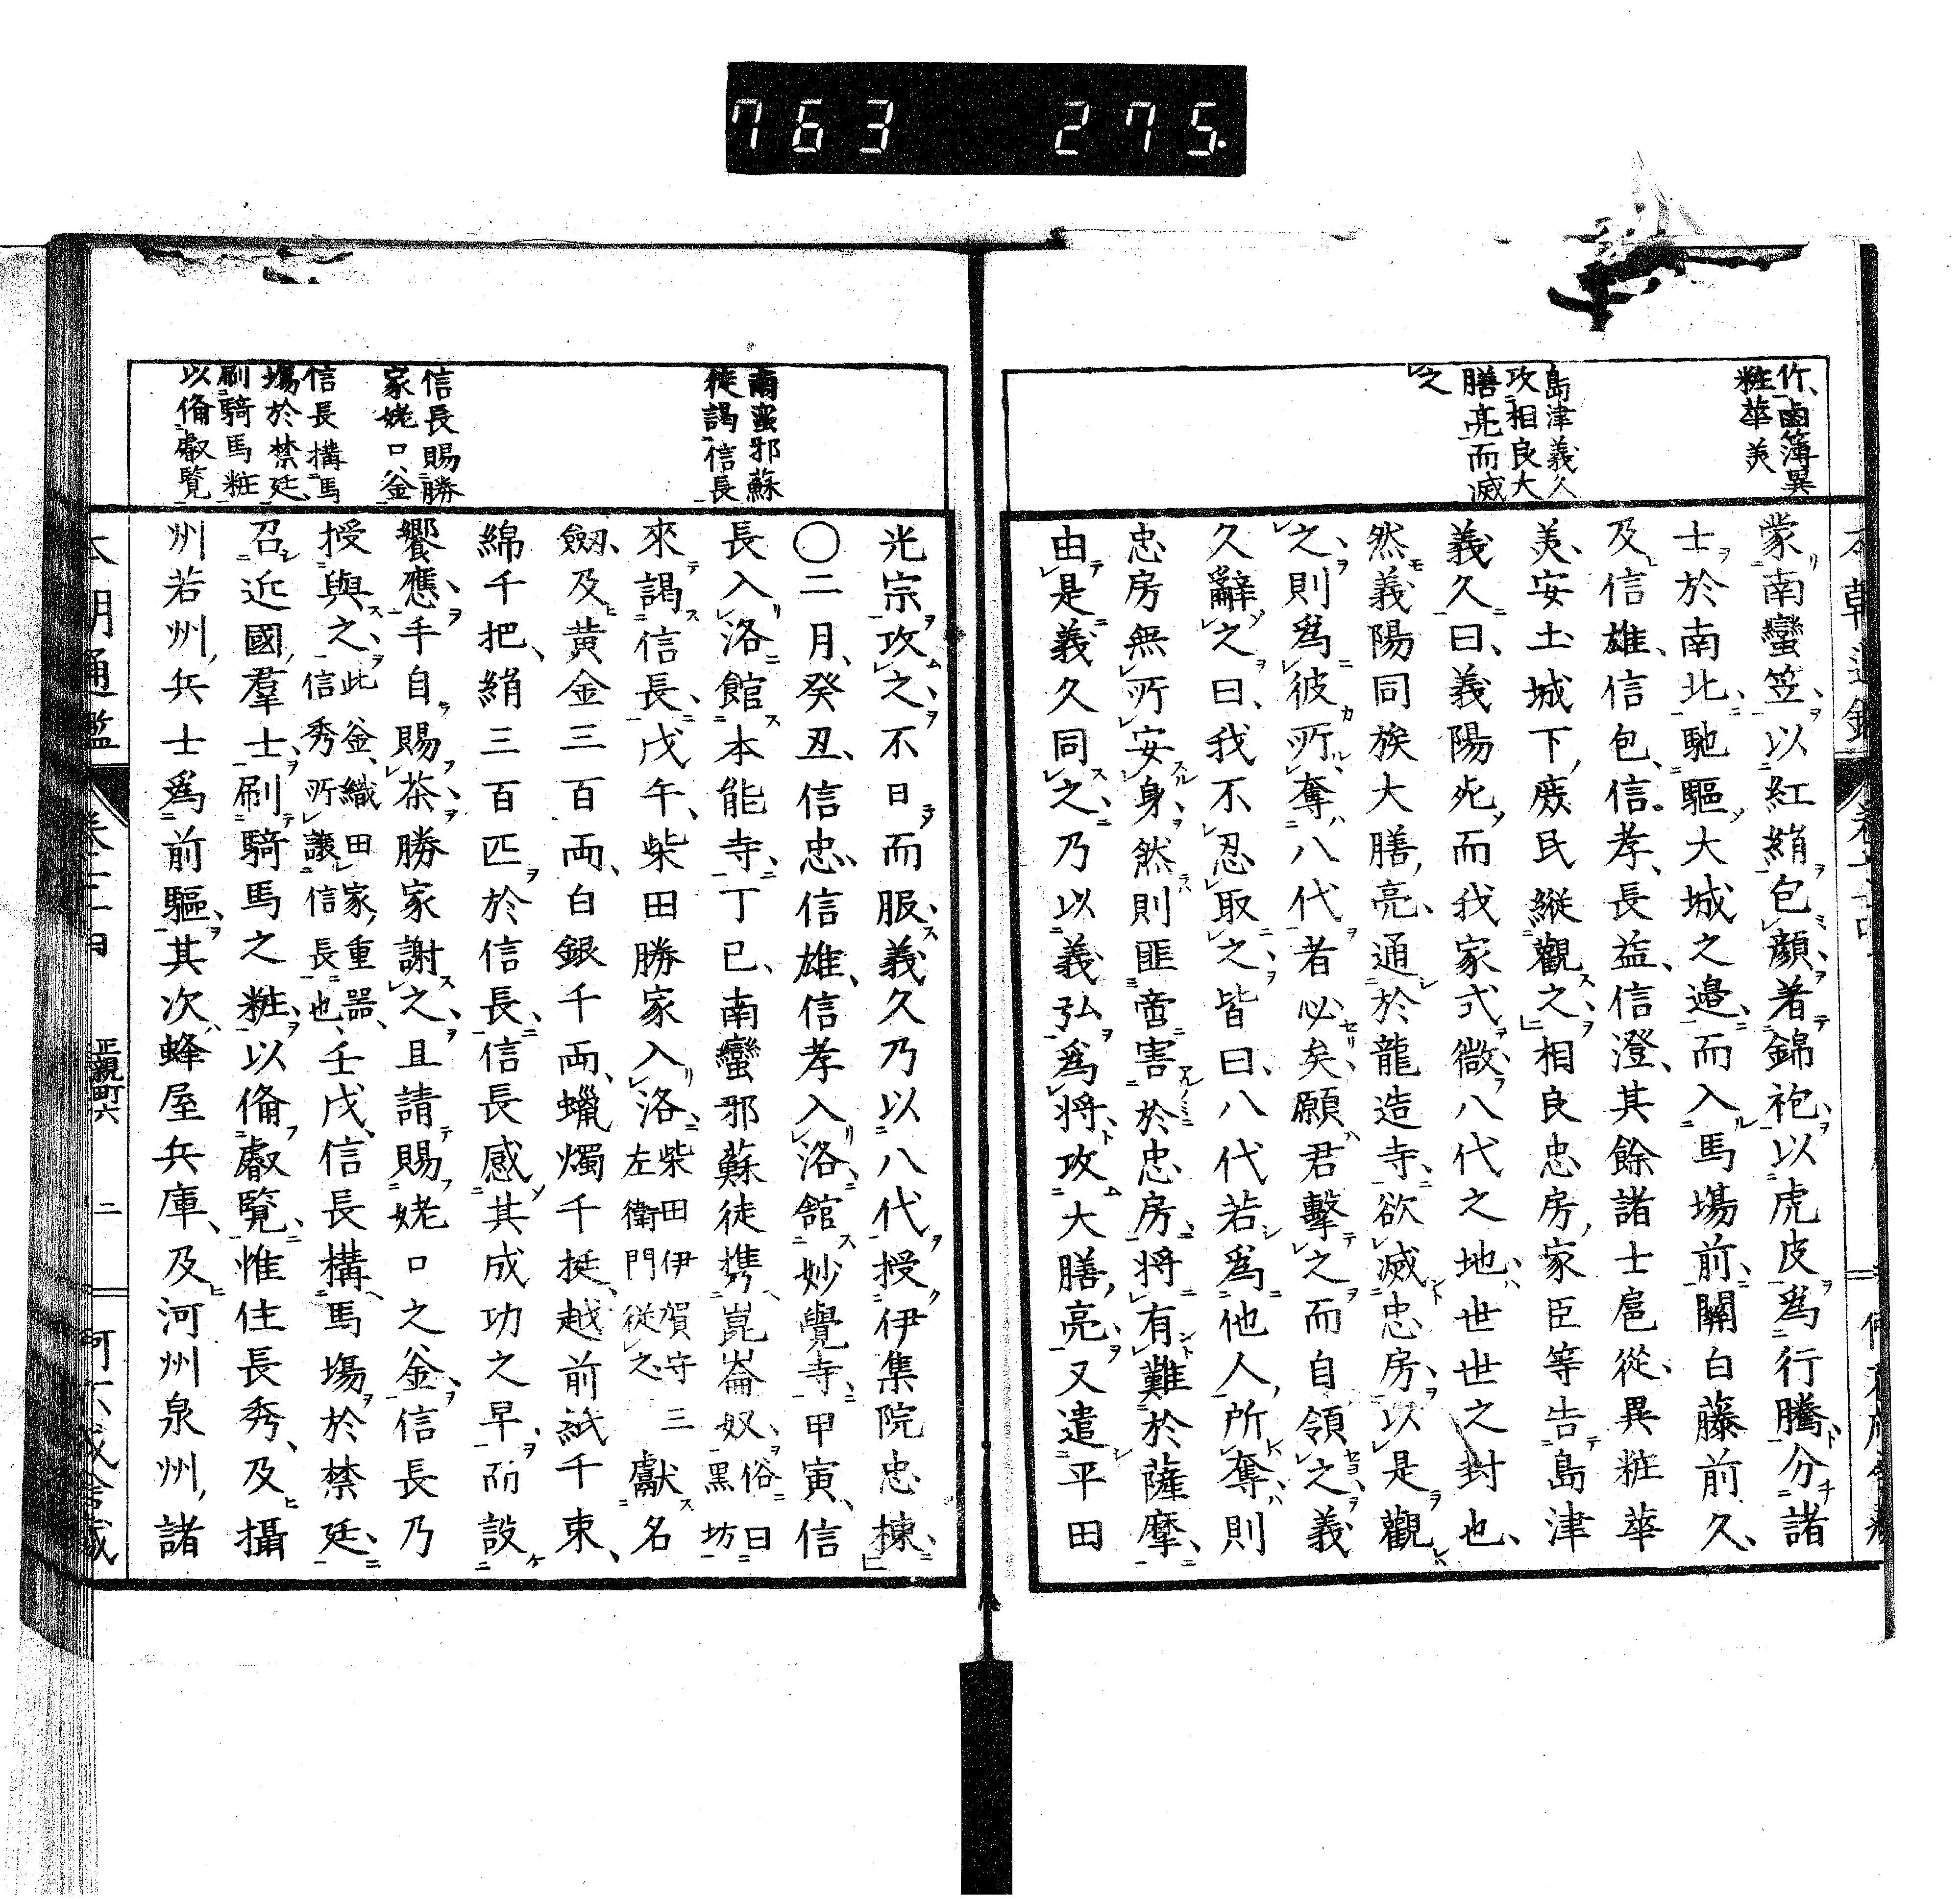 763 275.
竹、鹵簿異
粧華美
島津義久
攻相良大
膳亮而滅
之
蒙南蠻笠、以紅綃包顔、着錦袍、以虎皮爲行騰、分諸
士於南北、馳驅大城之邉、而入馬塲前、關白藤前久、
及信雄、信包、信孝、長益、信澄、其餘諸士扈從、異粧華
美、安土城下、庶民縱觀之、相良忠房、家臣等告島津
義久曰、義陽死而我家式微、八代之地、世世之封也、
然義陽同族大膳亮、通於龍造寺、欲滅忠房、以是觀
之、則爲彼所奪、八代者必矣、願君擊之而自領之、義
久辭之曰、我不忍取之、皆曰、八代若爲他人所奪、則
忠房無所安身、然則匪啻害於忠房、將有難於薩摩、
由是義久同之、乃以義弘爲將、攻大膳亮、又遣平田
南蠻邪蘇
徒謁信長
信長賜勝
家姥口釜
信長搆馬
塲於禁廷、
刷騎馬粧
以俻叡覧
光宗攻之、不日而服、義久乃以八代、授伊集院忠棟、
〇二月、癸丑、信忠、信雄、信孝入洛、舘妙覺寺、甲寅、信
長入洛、館本能寺、丁巳、南蠻邪蘇徒携崑崙奴、俗曰黒坊
來謁信長、戊午、柴田勝家入洛、柴田伊賀守三左衛門從之獻名
劔、及黄金三百両、白銀千両、蠟燭千挺、越前紙千束、
綿千把、絹三百匹、於信長、信長感其成功之早、而設
饗應、手自賜茶、勝家謝之、且請賜姥口之釜、信長乃
授與之、此釜、織田家重器、信秀所讓信長也、壬戌、信長搆馬塲於禁廷、
召近國羣士、刷騎馬之粧、以俻叡覧、惟住長秀、及攝
州若州、兵士爲前驅、其次蜂屋兵庫、及河州泉州、諸
正親町六
二